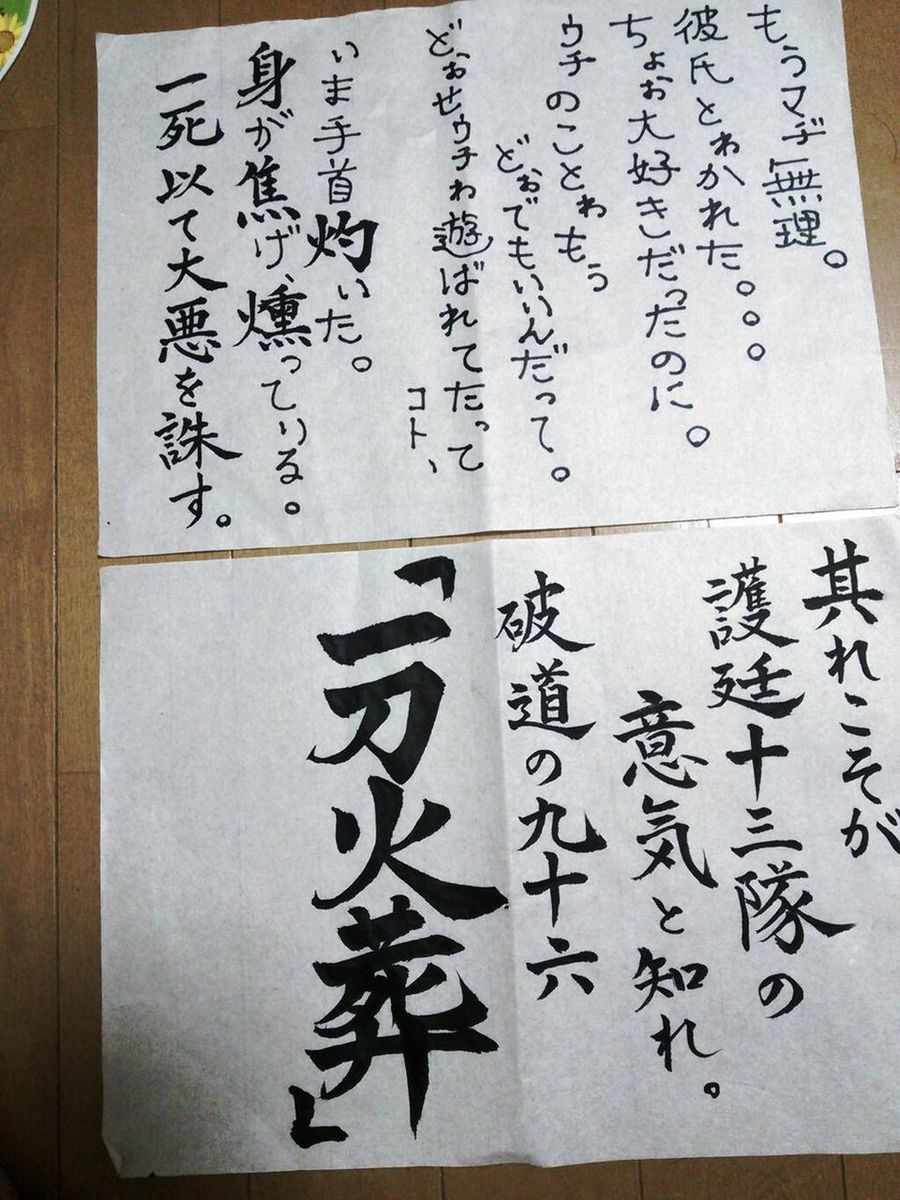 もうマヂ無理。
彼氏とゎかれた。。。
ちょぉ大好きだったのに。
ウチのことゎもぅ
どぉでもいいんだって。
どぉせウチゎ遊ばれてたって
コト、
いま手首灼いた。
身が焦げ、燻っている。
一死以て大悪を誅す。
其れこそが
護廷十三隊の
意気と知れ。
破道の九十六
「一刀火葬」